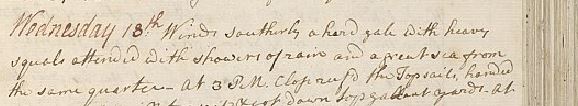 Wednesday 18th Winds Southerly a hard gale with heavy
squals attended with showers of rain and a great sea from
the same quarter. At 3 P.M. Close reef'd the Topsails, handed
down Top gallant yards. At